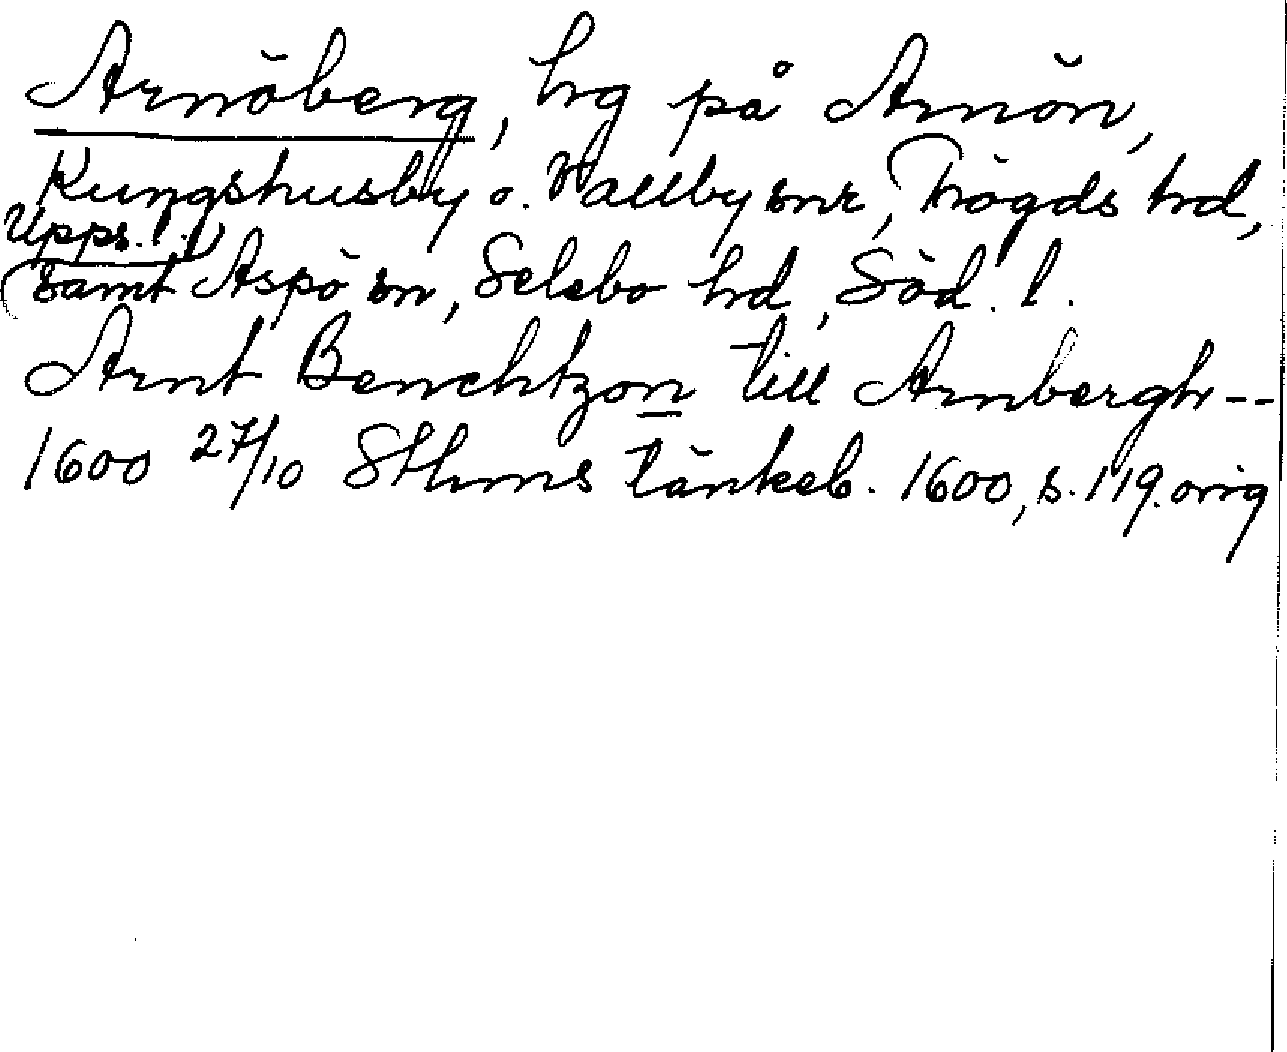 Arnöberg, hg på Arnön,
Kungshusby o. Vallby snr, Trögds hd,
Upps. l.
(samt Aspö sn, Selebo hd, Söd. l.
Arnt Benchtzon till Arnbergh --
1600 27/10 Sthms tänkeb. 1600, s. 119. orig